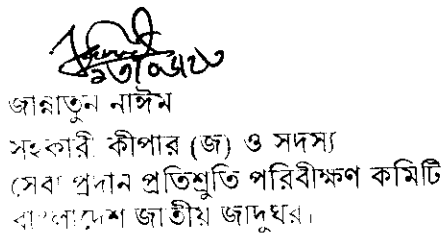 জান্নাতুন নাঈম
সহকারী কীপার (জ) ও সদস্য
সেবা প্রদান প্রতিশ্রুতি পরিবীক্ষণ কমিটি
বাংলাদেশ জাতীয় জাদুঘর।